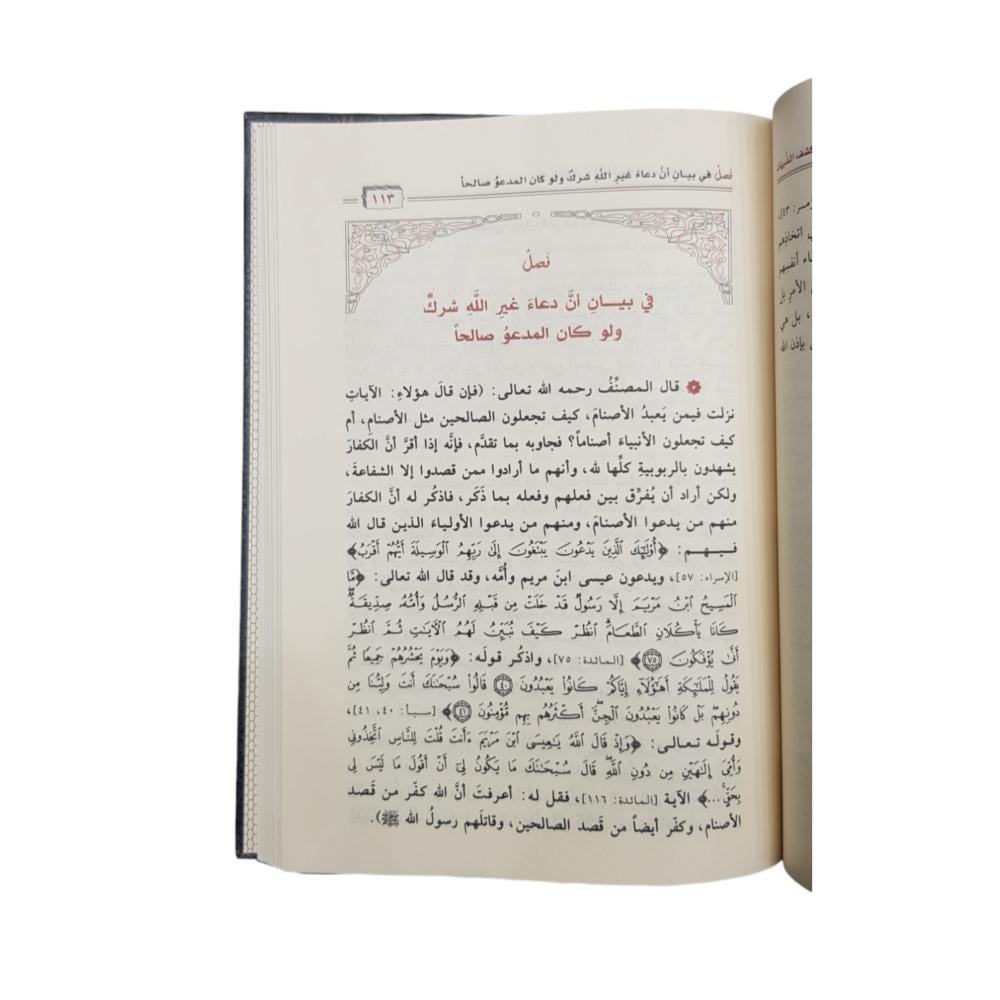 فَصلٌ في بيـانِ أنَّ دعاءَ غيرِ اللَّهِ شركٌ ولو كان المدعوُ صالحاً
١١٣
فَصلٌ
في بيـــانِ أنَّ دعاءَ غيرِ اللَّهِ شركٌ
ولو كان المدعوُ صالحاً
قال المصنِّفُ رحمه الله تعالى: (فإن قالَ هؤلاءِ: الآياتِ
نزلت فيمن يَعبدُ الأصنامَ، كيف تجعلون الصالحين مثل الأصنامِ، أم
كيف تجعلون الأنبياءَ أصناماً؟ فجاوبه بما تقدَّم، فإنَّه إذا أقرَّ أنَّ الكفارَ
يشهدون بالربوبيةِ كلِّها لله، وأنهم ما أرادوا ممن قصدوا إلا الشفاعةَ،
ولكن أراد أن يُفرِّق بين فعلهم وفعله بما ذَكَر، فاذكُر له أنَّ الكفارَ
منهم من يدعوا الأصنامَ، ومنهم من يدعوا الأولياءَ الذين قال الله
فـيـهـم: ﴿أُوْلَٰٓئِكَ ٱلَّذِينَ يَدْعُونَ يَبْتَغُونَ إِلَىٰ رَبِّهِمُ ٱلْوَسِيلَةَ أَيُّهُمْ أَقْرَبُ﴾
[الإسراء: ٥٧]، ويدعون عيسى ابنَ مريم وأُمَّه، وقد قال الله تعالى: ﴿مَّا
ٱلْمَسِيحُ ٱبْنُ مَرْيَمَ إِلَّا رَسُولٌ قَدْ خَلَتْ مِن قَبْلِهِ ٱلرُّسُلُ وَأُمُّهُۥ صِدِّيقَةٌ ۖ
كَانَا يَأْكُلَانِ ٱلطَّعَامَ ۗ ٱنظُرْ كَيْفَ نُبَيِّنُ لَهُمُ ٱلْءَايَٰتِ ثُمَّ ٱنظُرْ
أَنَّىٰ يُؤْفَكُونَ ٧٥﴾ [المائدة: ٧٥]، واذكُر قولَه: ﴿وَيَوْمَ يَحْشُرُهُمْ جَمِيعًا ثُمَّ
يَقُولُ لِلْمَلَٰٓئِكَةِ أَهَٰٓؤُلَآءِ إِيَّاكُمْ كَانُوا۟ يَعْبُدُونَ ٤٠ قَالُوا۟ سُبْحَٰنَكَ أَنتَ وَلِيُّنَا مِن
دُونِهِم ۖ بَلْ كَانُوا۟ يَعْبُدُونَ ٱلْجِنَّ ۖ أَكْثَرُهُم بِهِم مُّؤْمِنُونَ ٤١﴾ [سبأ: ٤٠، ٤١]،
وقولَه تعالى: ﴿وَإِذْ قَالَ ٱللَّهُ يَٰعِيسَى ٱبْنَ مَرْيَمَ ءَأَنتَ قُلْتَ لِلنَّاسِ ٱتَّخِذُونِى
وَأُمِّىَ إِلَٰهَيْنِ مِن دُونِ ٱللَّهِ ۖ قَالَ سُبْحَٰنَكَ مَا يَكُونُ لِىٓ أَنْ أَقُولَ مَا لَيْسَ لِى
بِحَقٍّ ۚ...﴾ الآية [المائدة: ١١٦]، فقل له: أعرفتَ أنَّ الله كفّر من قَصد
الأصنام، وكفّر أيضاً من قَصد الصالحين، وقاتلَهم رسولُ الله ﷺ).
اتخاذهم
الأمرِ بل
، بل هي
بإذن الله